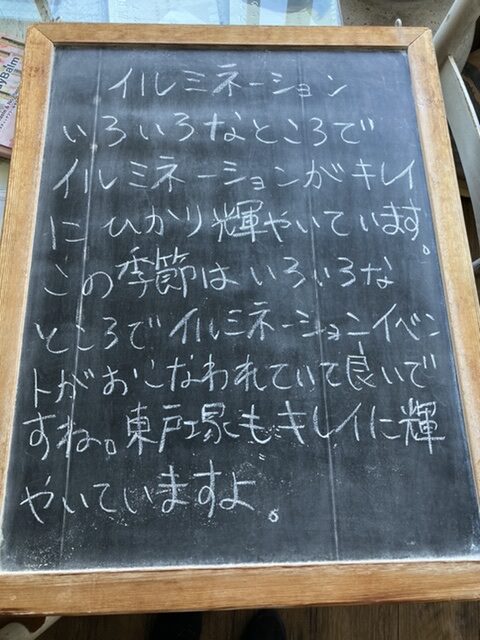 イルミネーション
いろいろなところで
イルミネーションがキレイ
にひかり輝やいています。
この季節はいろいろな
ところでイルミネーションイベン
トがおこなわれていて良いで
すね。東戸塚もキレイに輝
やいていますよ。